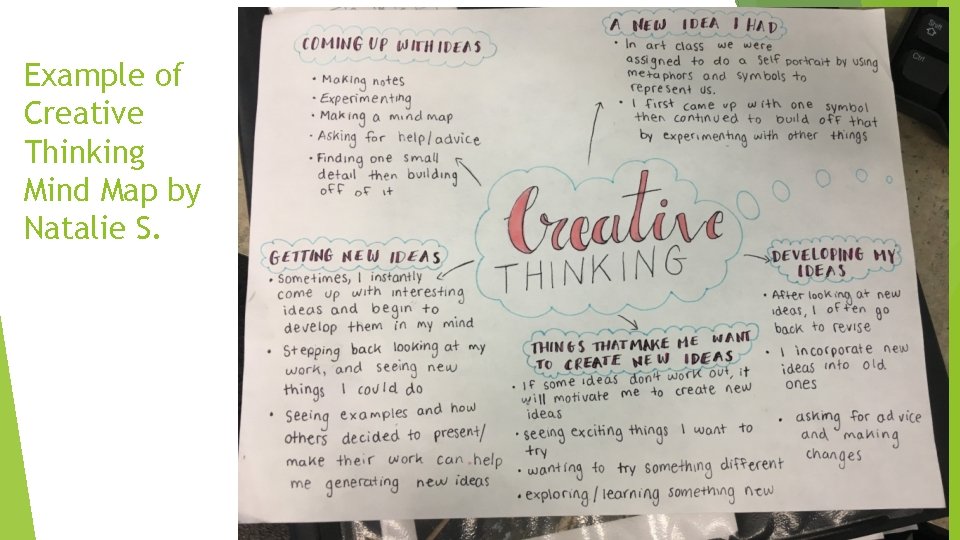 Example of
Creative
Thinking
Mind Map by
Natalie S.
COMING UP WITH IDEAS
• Making notes
• Experimenting
• Making a mind map
• Asking for help/advice
• Finding one small
detail then building
off of it
A NEW IDEA I HAD
• In art class we were
assigned to do a self portrait by using
metaphors and symbols to
represent us.
• I first came up with one symbol
then continued to build off that
by experimenting with other things
Creative
THINKING
GETTING NEW IDEAS
• Sometimes, I instantly
come up with interesting
ideas and begin to
develop them in my mind
• Stepping back looking at my
work, and seeing new
things I could do
• Seeing examples and how
others decided to present/
make their work can help
me generating new ideas
THINGS THAT MAKE ME WANT
TO CREATE NEW IDEAS
• If some ideas don't work out, it
will motivate me to create new
ideas
• seeing exciting things I want to
try
• wanting to try something different
• exploring/learning something new
DEVELOPING MY
IDEAS
• After looking at new
ideas, I often go
back to revise
• I incorporate new
ideas into old
ones
• asking for advice
and making
changes
Shift
Ctrl